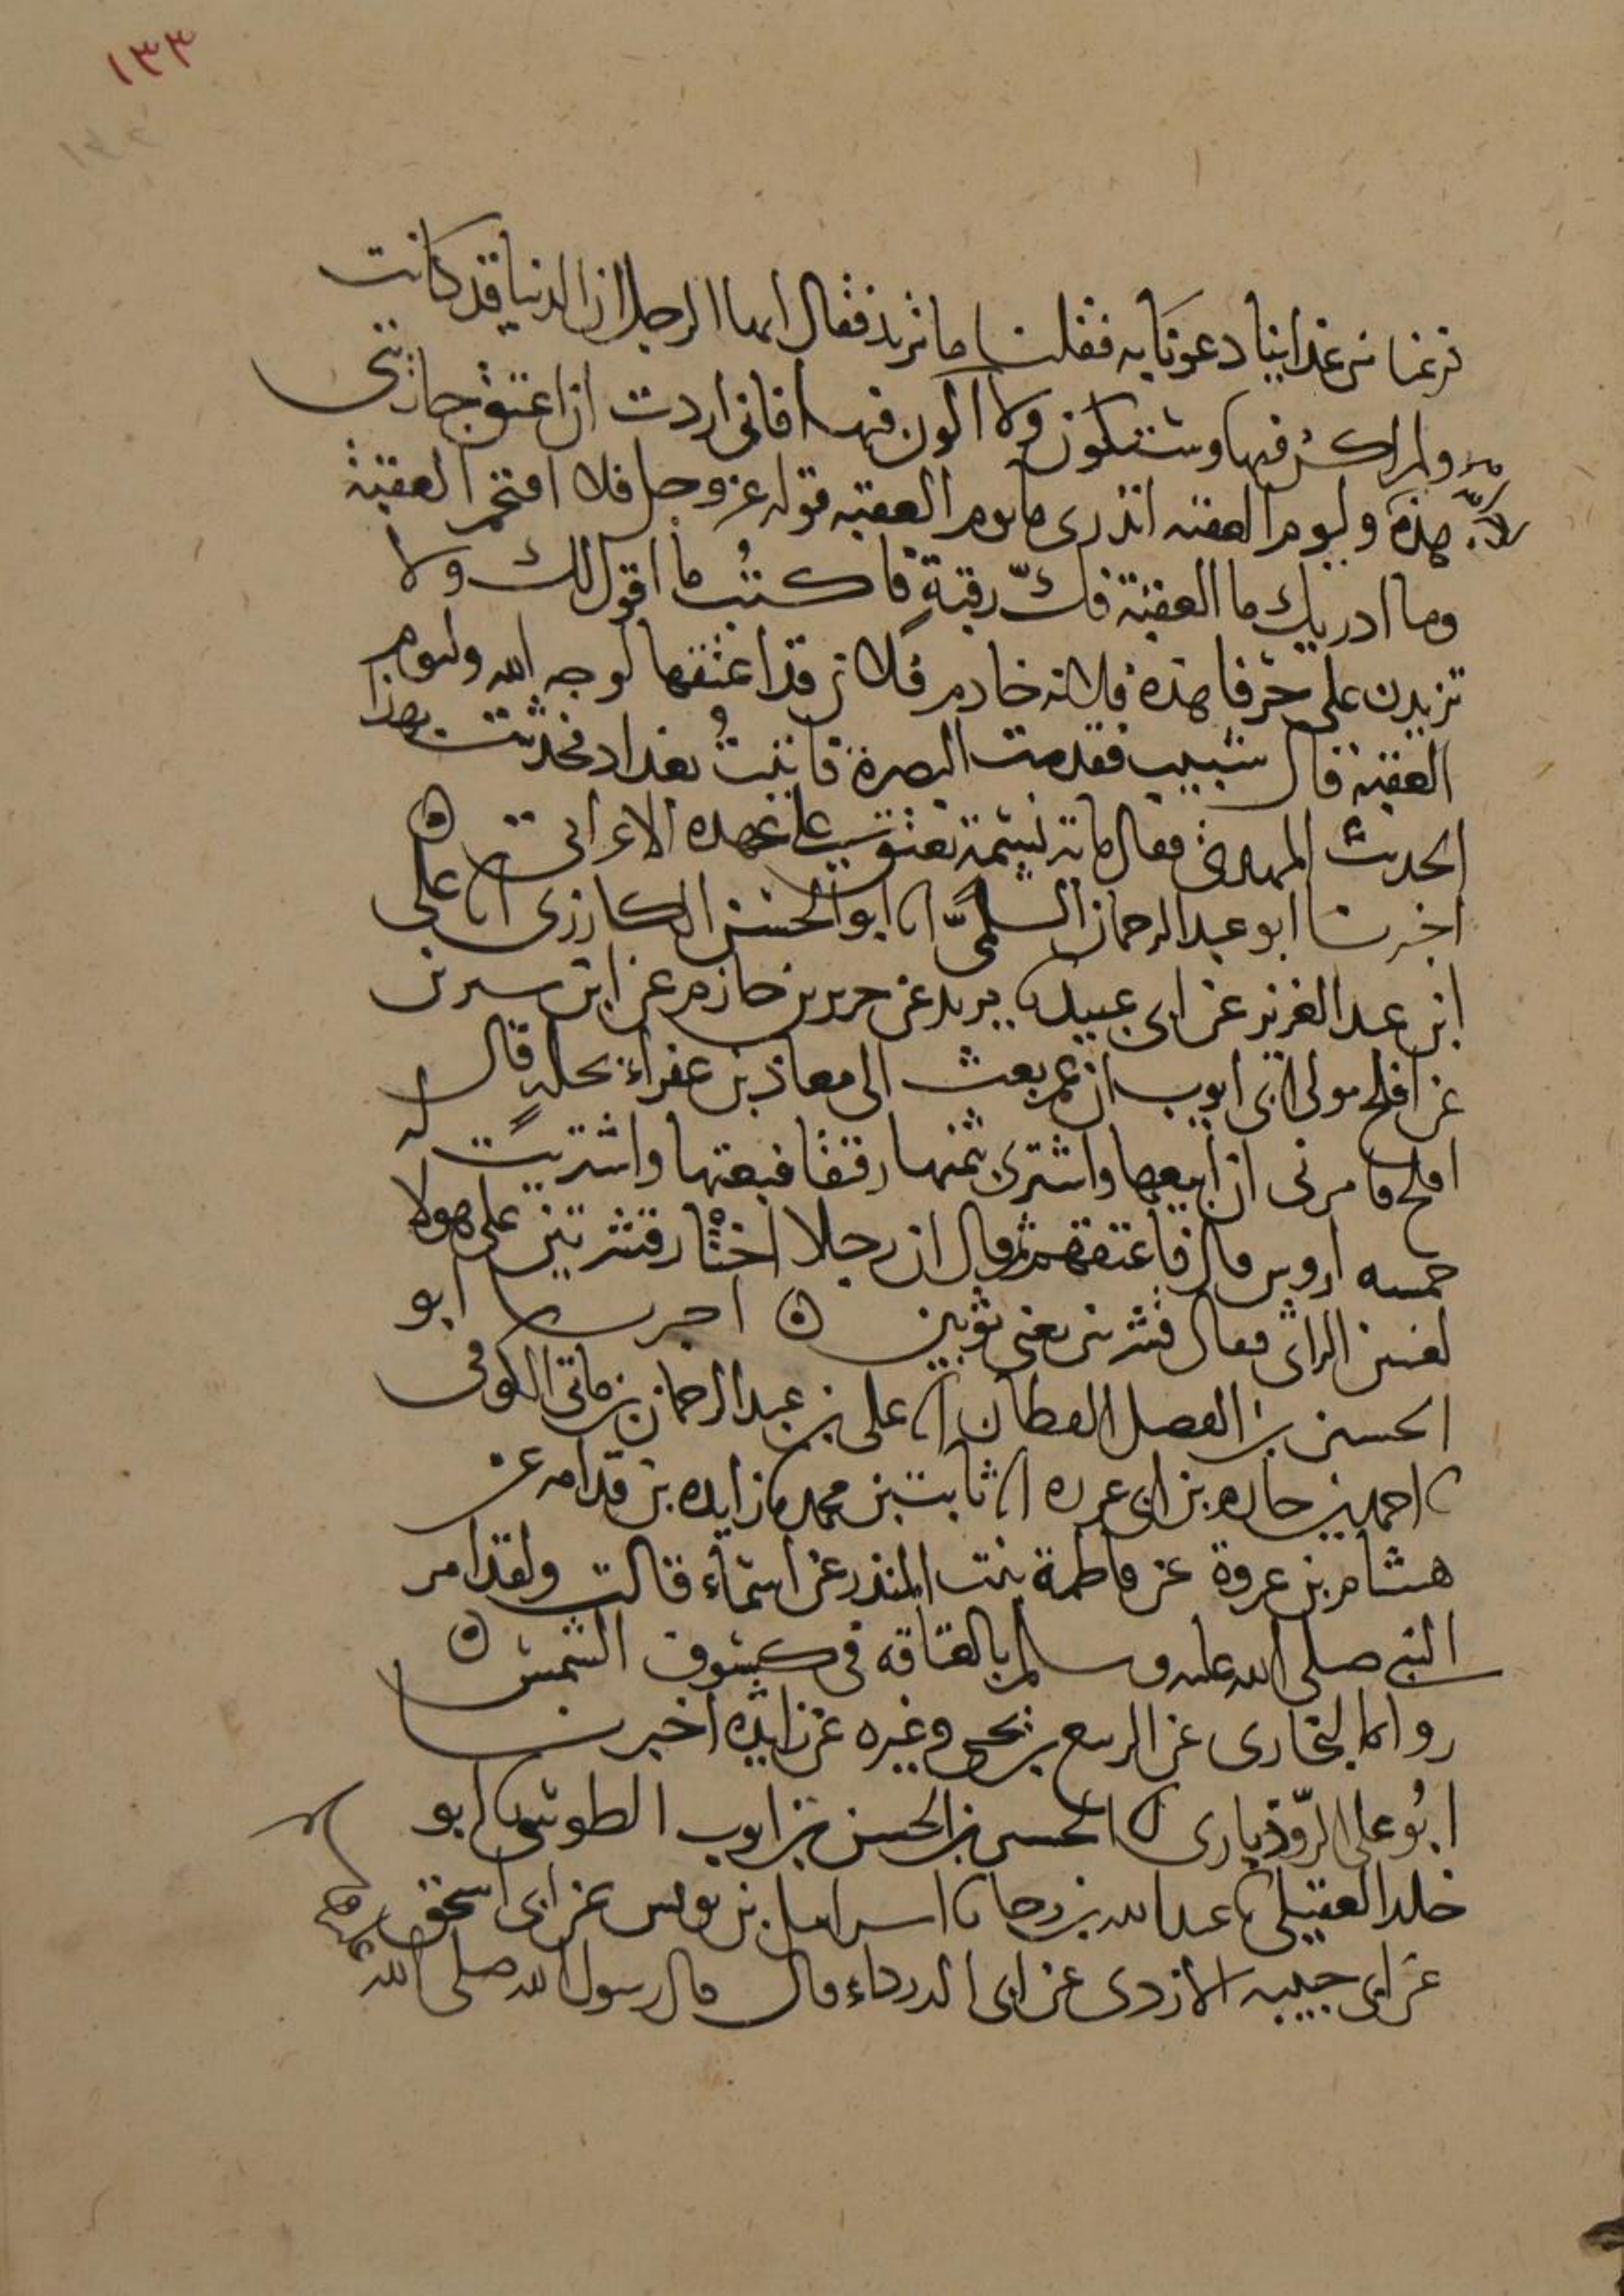 ١٣٣
فرغنا من غدائنا دعونا به فقلنا ما تريد فقال ايها الرجل ان الدنيا قد كانت
ولم اكن فيها وستكون ولا اكون فيها فاني اردت ان اعتق جاريتي
هذه وليوم العقبة اتدري ما يوم العقبة قوله عز وجل فلا اقتحم العقبة
وما ادريك ما العقبة فك رقبة فاكتب ما اقول لك ولا
تزيدن على حرفا هذه فلانة خادم فلان قد اعتقها لوجه الله وليوم
العقبة قال شبيب فقدمت البصرة فاتيت بغداد فحدثت بهذا
الحديث المهدي فقال مائة نسمة تعتق على عهدة الاعرابي
اخبرنا ابو عبد الرحمان السلمي انا ابو الحسن الكارزي انا علي
ابن عبد العزيز عن ابي عبيد نا يزيد عن جرير بن حازم عن ابن سيرين
عن افلح مولى ابي ايوب ان عمر بعث الى معاذ بن عفراء بحلة قال
افلح فامرني ان ابيعها واشتري بثمنها رقيقا فبعتها واشتريت له
خمسة اروس قال فاعتقهم ثم قال ان رجلا اختار قشرتين على هولا
لغبين الراي فقال قشرتين يعني ثوبين اخبرنا ابو
الحسين بن الفضل القطان انا علي بن عبد الرحمان بن ماتي الكوفي
نا احمد بن حازم بن ابي غرزة انا ثابت بن محمد نا زايدة بن قدامة عن
هشام بن عروة عن فاطمة بنت المنذر عن اسماء قالت ولقد امر
النبي صلى الله عليه وسلم بالعتاقة في كسوف الشمس
رواه البخاري عن الربيع بن يحيى وغيره عن زايدة اخبرنا
ابو علي الروذباري نا الحسين بن الحسن بن ايوب الطوسي نا ابو
خلد العقيلي نا عبد الله بن رجا نا اسرايل بن يونس عن ابي اسحق
عن ابي حبيبة الازدي عن ابي الدرداء قال قال رسول الله صلى الله عليه وسلم